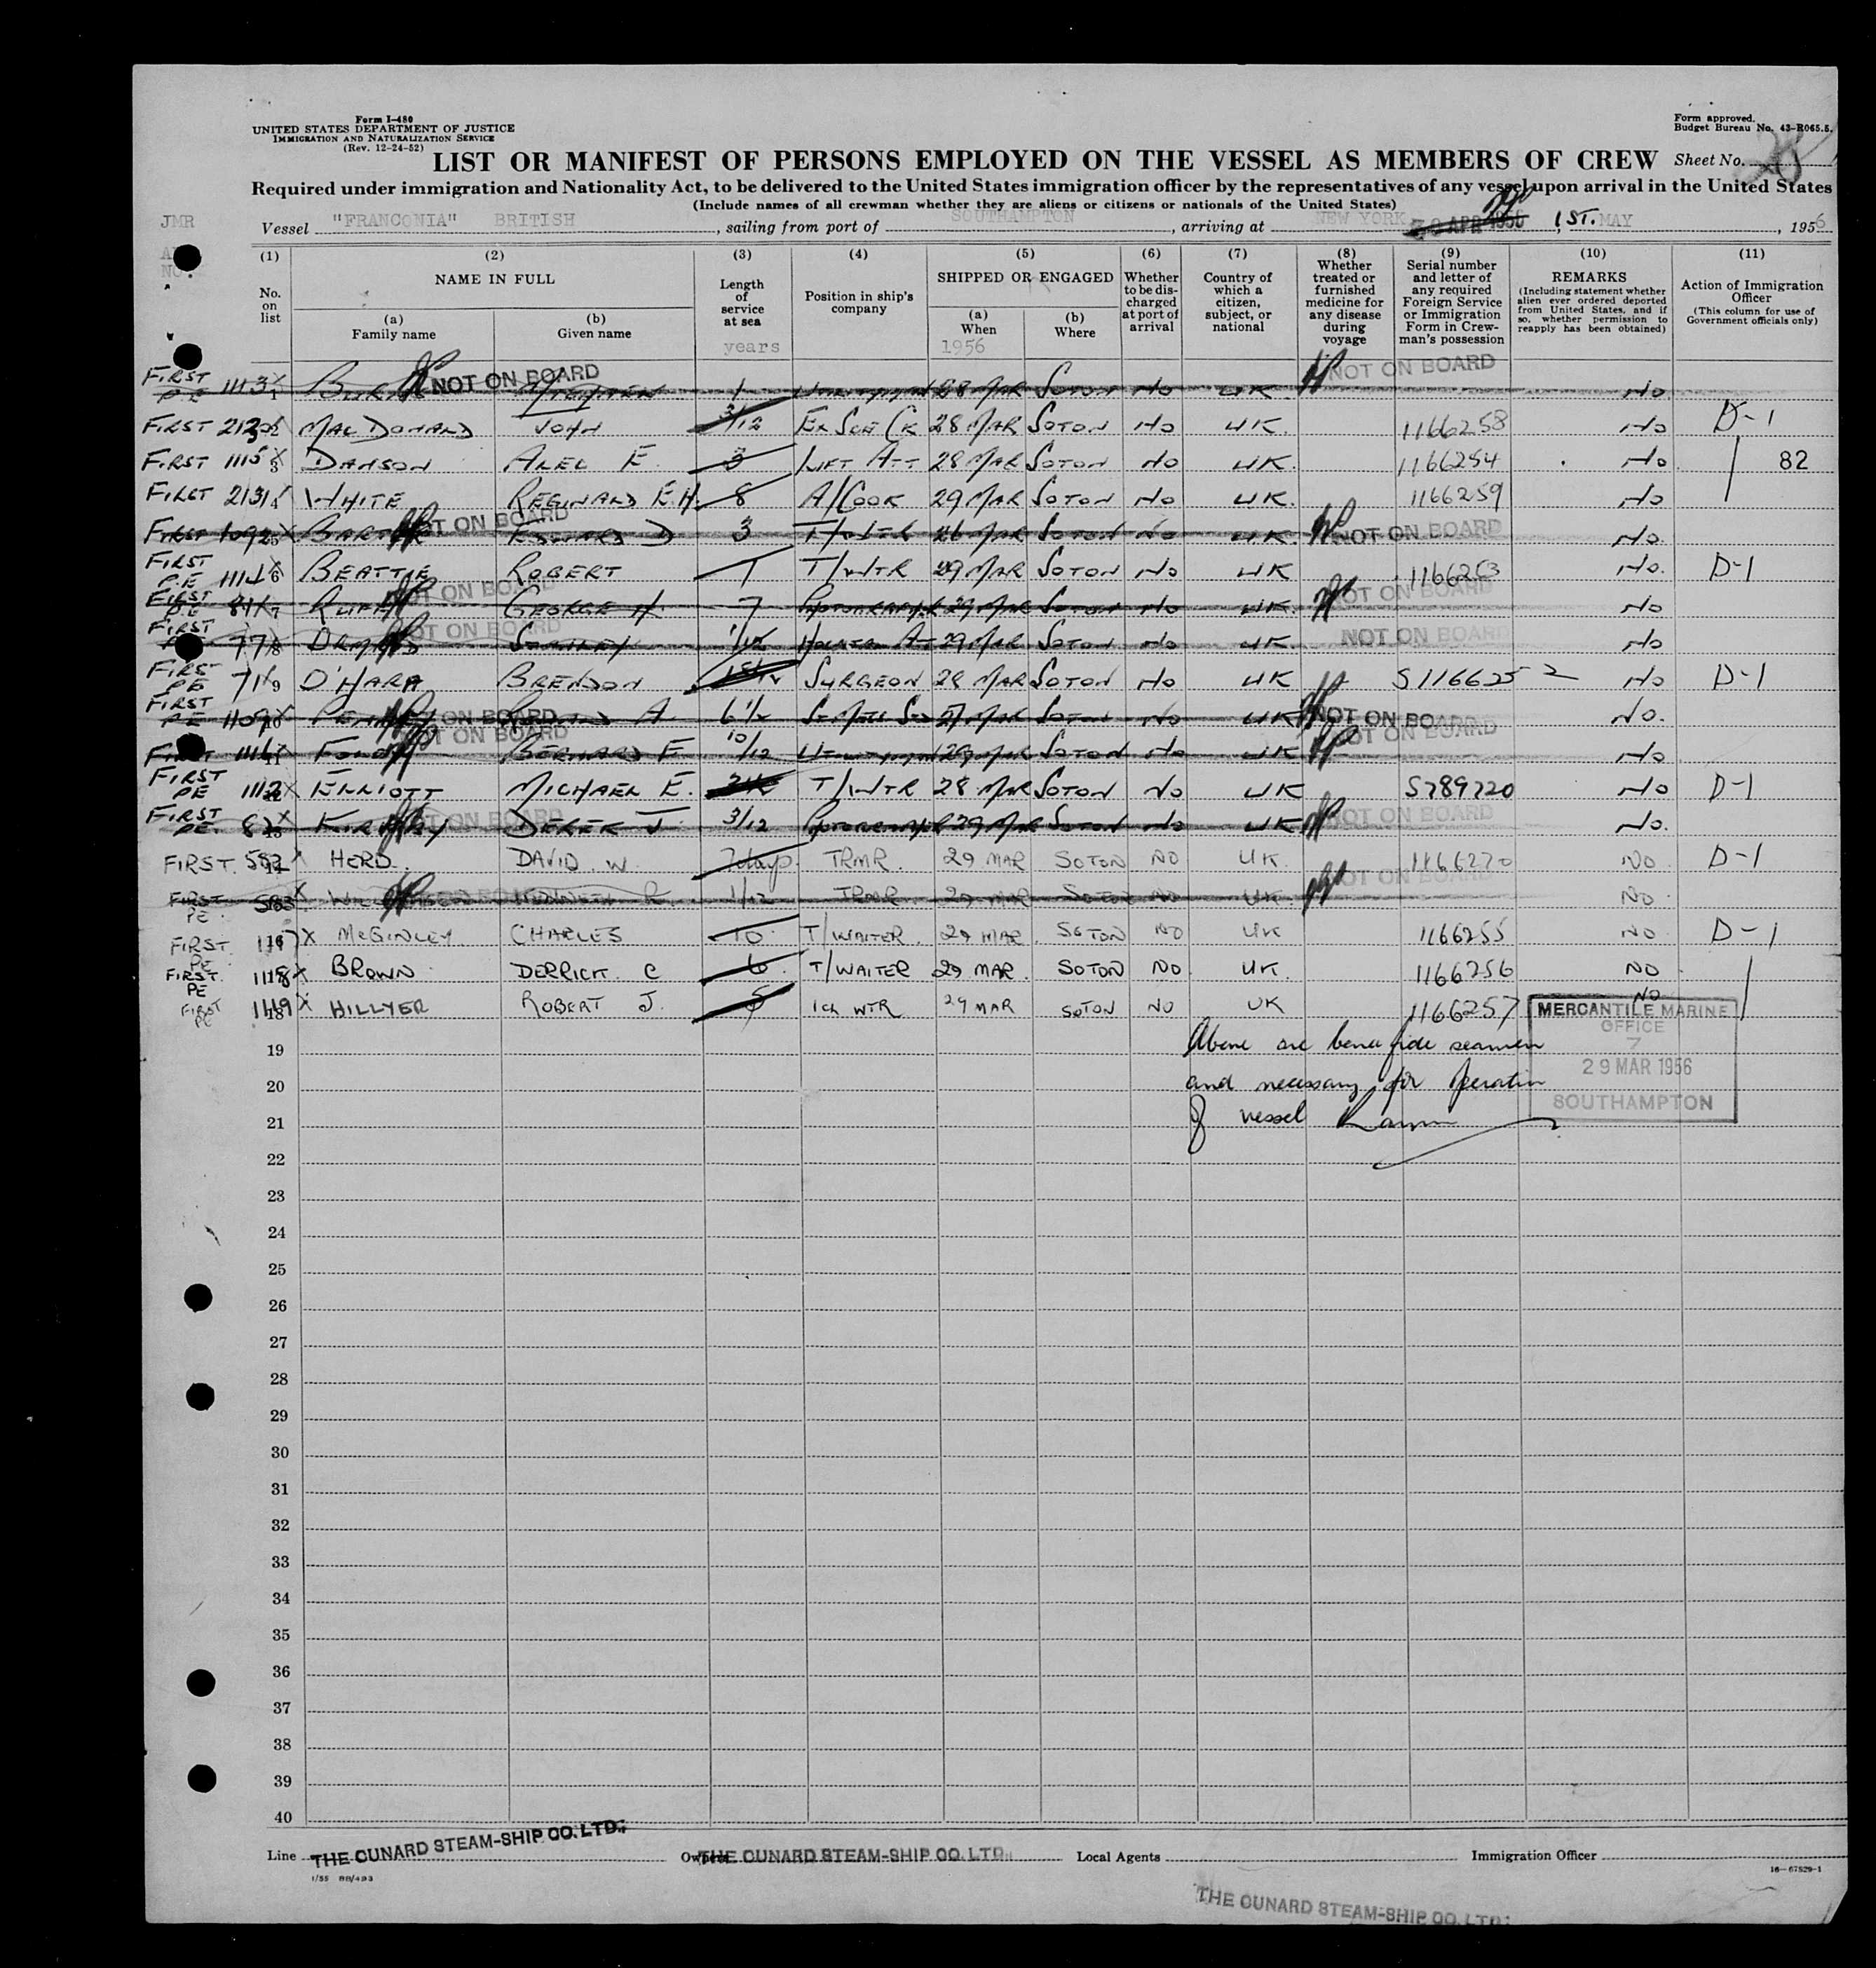 Form I-480
UNITED STATES DEPARTMENT OF JUSTICE
IMMIGRATION AND NATURALIZATION SERVICE
(Rev. 12-24-52)
Form approved.
Budget Bureau No. 43-R065.5.
LIST OR MANIFEST OF PERSONS EMPLOYED ON THE VESSEL AS MEMBERS OF CREW Sheet No.
Required under immigration and Nationality Act, to be delivered to the United States immigration officer by the representatives of any vessel upon arrival in the United States
(Include names of all crewman whether they are aliens or citizens or nationals of the United States)
JMR
Vessel "FRANCONIA" BRITISH , sailing from port of SOUTHAMPTON , arriving at NEW YORK 30 APR 1956 1ST. MAY , 1956
(1) No. on list
(2) NAME IN FULL
(a) Family name
(b) Given name
(3) Length of service at sea
years
(4) Position in ship's company
(5) SHIPPED OR ENGAGED
(a) When
1956
(b) Where
(6) Whether to be discharged at port of arrival
(7) Country of which a citizen, subject, or national
(8) Whether treated or furnished medicine for any disease during voyage
(9) Serial number and letter of any required Foreign Service or Immigration Form in Crewman's possession
(10) REMARKS
(Including statement whether alien ever ordered deported from United States, and if so, whether permission to reapply has been obtained)
(11) Action of Immigration Officer
(This column for use of Government officials only)
FIRST PE 1113 X 1 NOT ON BOARD 1 28 MAR SOTON NO UK NOT ON BOARD NO
FIRST 2132 MAC DONALD JOHN 3/12 EX SCE CK 28 MAR SOTON NO UK. 1166258 NO D-1
FIRST 1115 X 3 DAWSON ALEC E. 3 LIFT ATT 28 MAR SOTON NO UK. 1166254 NO 82
FIRST 2131 4 WHITE REGINALD E.H. 8 A/COOK 29 MAR SOTON NO UK. 1166259 NO
FIRST 1092 X NOT ON BOARD EDWARD D 3 T/WTR 26 MAR SOTON NO UK. NOT ON BOARD NO.
FIRST P.E 1114 X 6 BEATTIE ROBERT 1 T/WTR 29 MAR SOTON NO UK 1166253 NO. D-1
FIRST P.E 81 X 7 NOT ON BOARD GEORGE H. 7 PHOTOGRAPHER 29 MAR SOTON NO UK. NOT ON BOARD NO
FIRST 77 8 NOT ON BOARD STANLEY 1/12 29 MAR SOTON NO UK. NOT ON BOARD NO
FIRST PE 71 X 9 O'HARA BRENDON SURGEON 28 MAR SOTON NO UK S1166252 NO D-1
FIRST P.E 1109 X NOT ON BOARD A. 6 1/2 27 MAR SOTON NO UK NOT ON BOARD NO.
FIRST 1116 X NOT ON BOARD BERNARD F 10/12 29 MAR SOTON NO UK NOT ON BOARD NO
FIRST PE 1112 X ELLIOTT MICHAEL E. T/WTR 28 MAR SOTON NO UK S789720 NO D-1
FIRST PE. 82 X NOT ON BOARD DEREK J. 3/12 PHOTOGRAPHER 29 MAR SOTON NO UK NOT ON BOARD NO.
FIRST. 582 X HERD. DAVID. W. 7 days. TRMR. 29 MAR SOTON NO UK. 1166270 NO D-1
FIRST PE. 583 X KENNETH R. 1/12 TRMR 29 MAR SOTON NO UK NOT ON BOARD NO
FIRST. PE 1117 X McGINLEY. CHARLES 10 T/WAITER. 29 MAR. SOTON NO UK 1166255 NO D-1
FIRST. PE 1118 X BROWN DERRICK. C 6 T/WAITER 29 MAR. SOTON NO UK. 1166256 NO
FIRST PE 1119 X HILLYER ROBERT J. 5 1CL WTR 29 MAR SOTON NO UK 1166257 NO
Above are bona fide seamen
and necessary for operation
of vessel
MERCANTILE MARINE
OFFICE
7
29 MAR 1956
SOUTHAMPTON
19
20
21
22
23
24
25
26
27
28
29
30
31
32
33
34
35
36
37
38
39
40
Line THE CUNARD STEAM-SHIP CO. LTD. Owners THE CUNARD STEAM-SHIP CO. LTD. Local Agents Immigration Officer
1/55 BB/493
16—67529-1
THE CUNARD STEAM-SHIP CO. LTD.